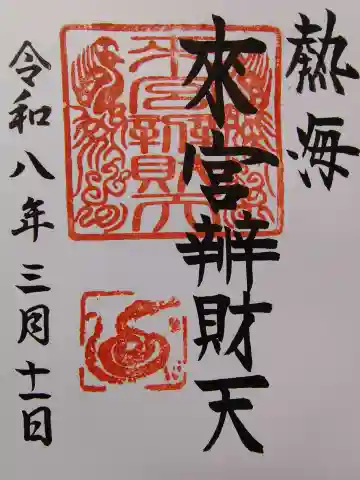 熱海
來宮辨財天
令和八年三月十一日